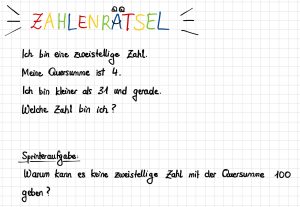 ZAHLENRÄTSEL
Ich bin eine zweistellige Zahl.
Meine Quersumme ist 4.
Ich bin kleiner als 31 und gerade.
Welche Zahl bin ich?
Sprinteraufgabe:
Warum kann es keine zweistellige Zahl mit der Quersumme 100
geben?